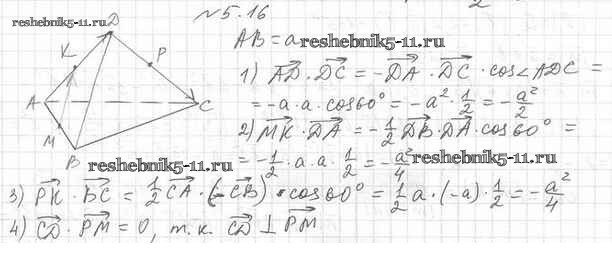 reshebnik5-11.ru
№5.16
D
K
P
A
C
M
B
AB = a reshebnik5-11.ru
1) AD · DC = -DA · DC · cos∠ADC =
= -a · a · cos60° = -a² · 1/2 = -a²/2
2) MK · DA = -1/2 DB · DA · cos60° =
= -1/2 · a · a · 1/2 = -a²/4
reshebnik5-11.ru
reshebnik5-11.ru
3) PK · BC = 1/2 CA · (-CB) · cos60° = 1/2 a · (-a) · 1/2 = -a²/4
4) CD · PM = 0, т.к. CD ⊥ PM